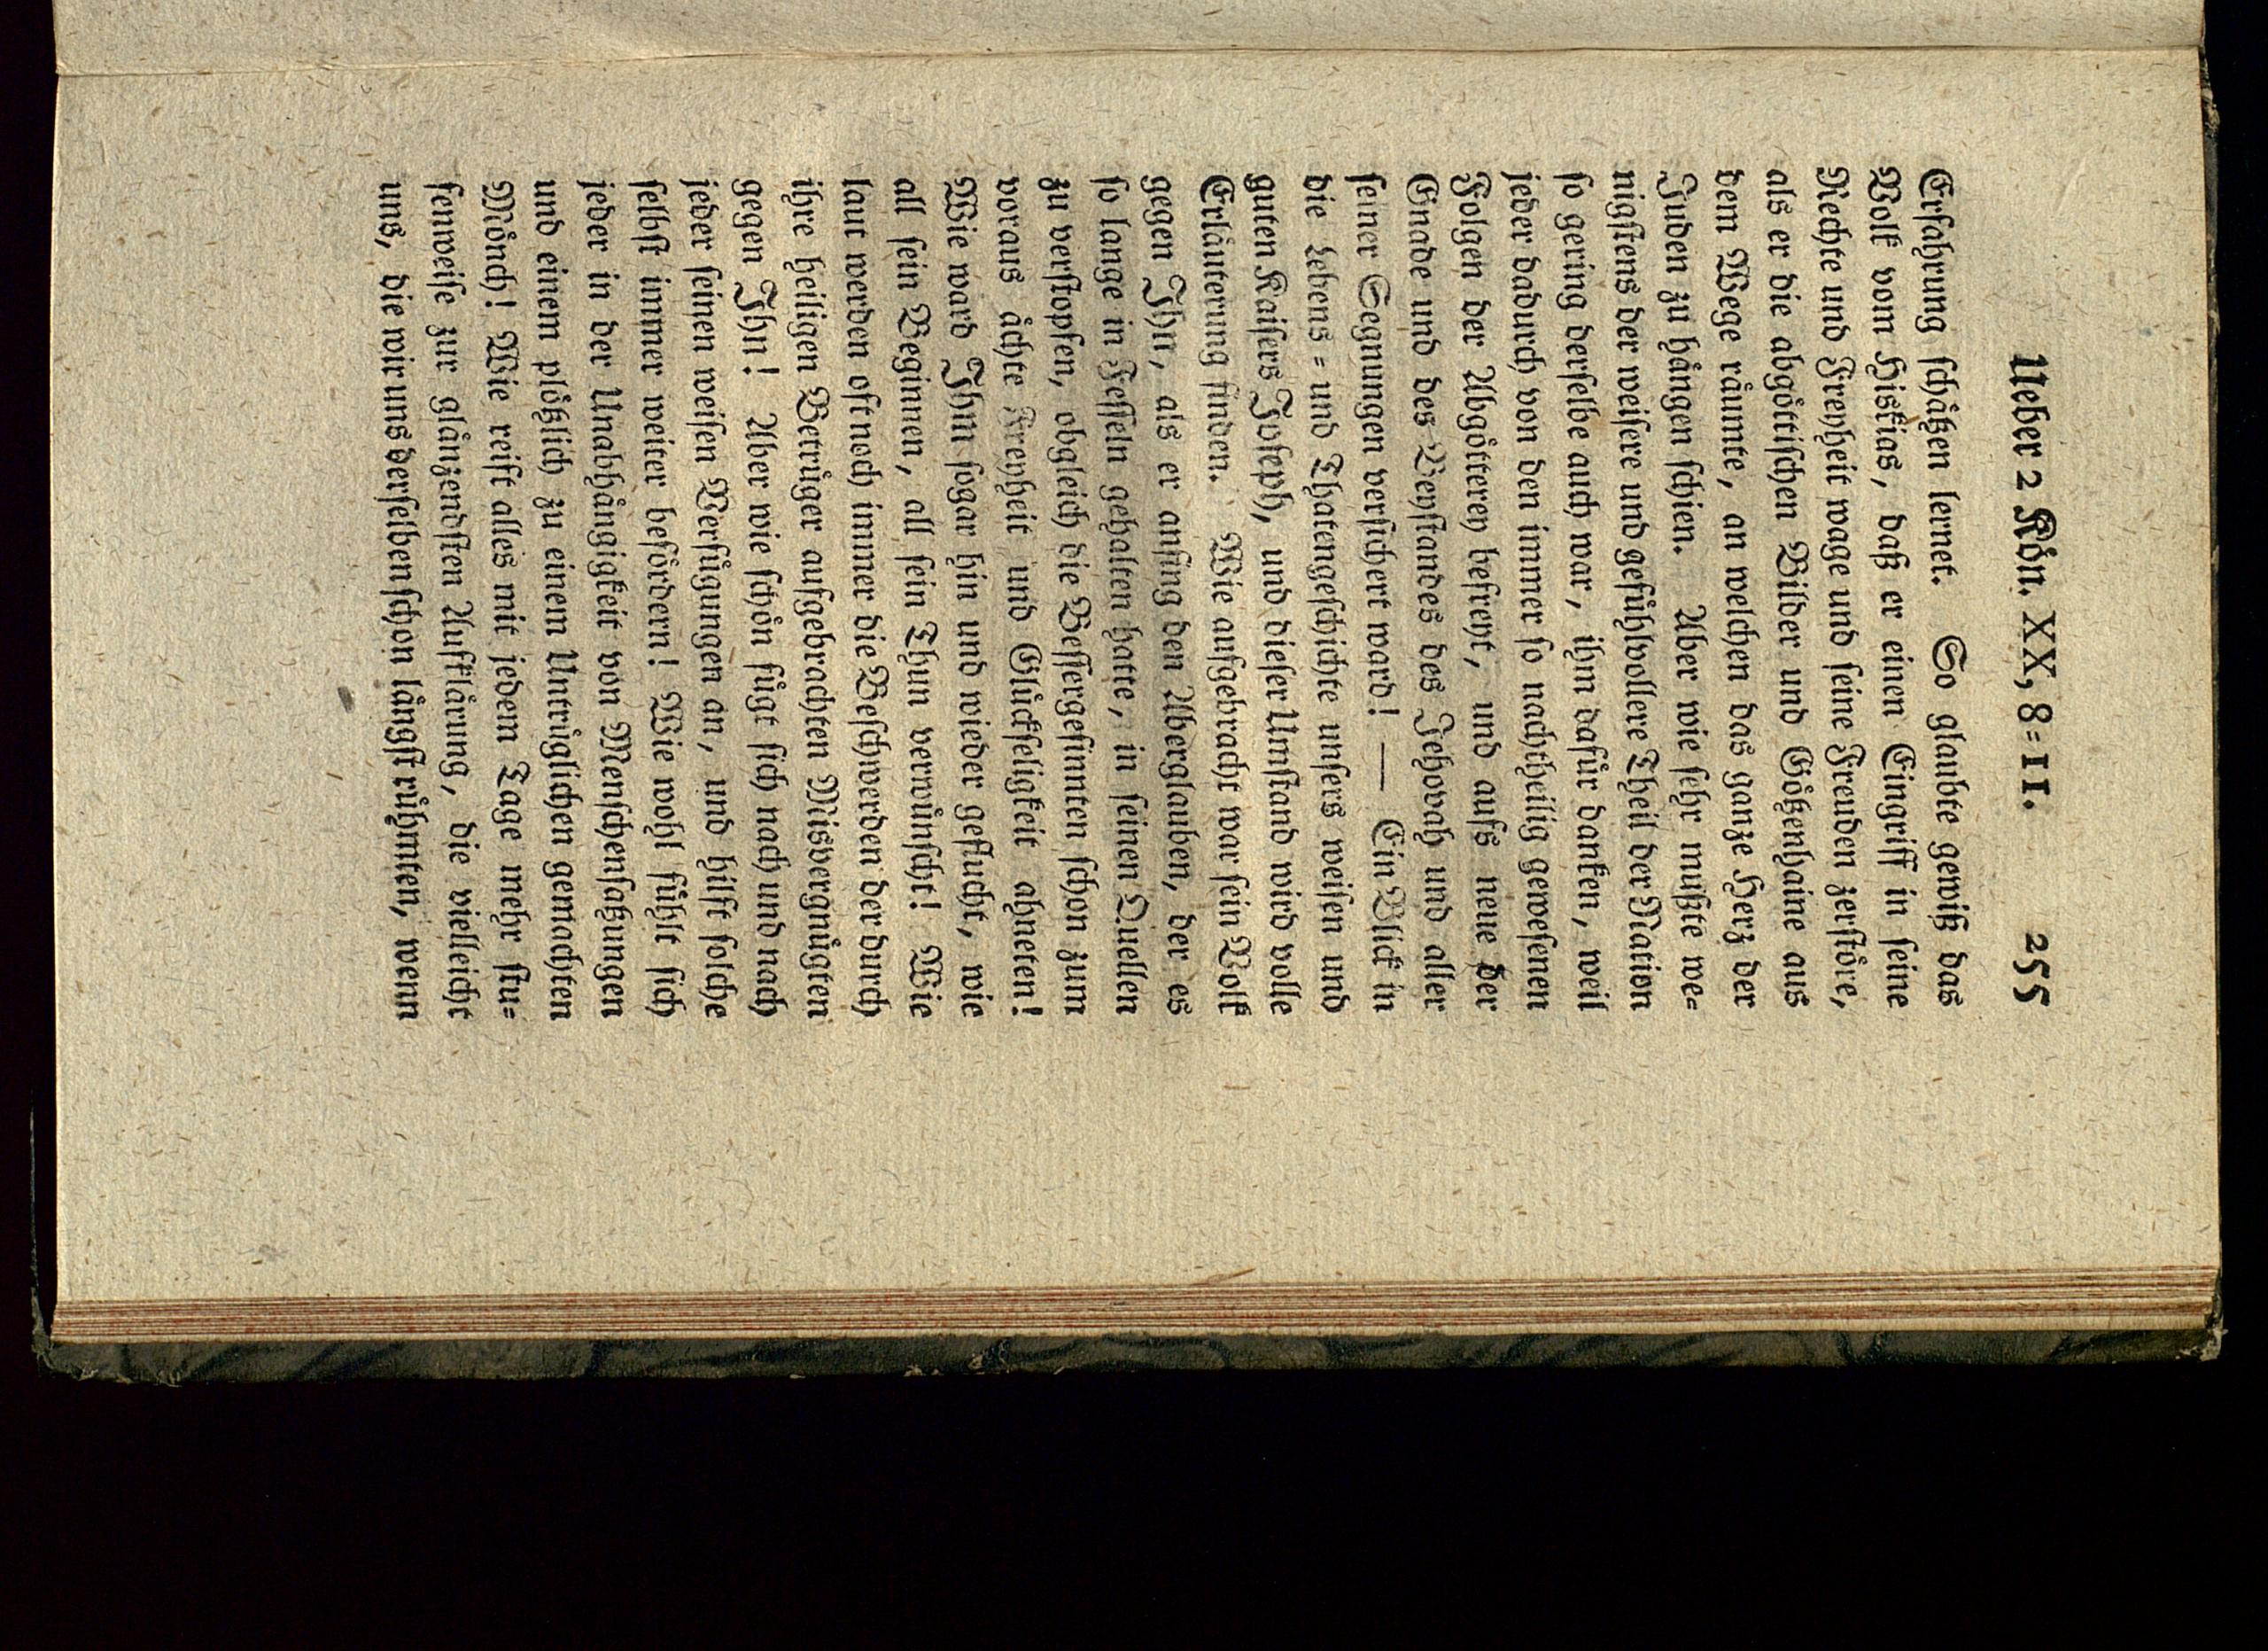 Ueber 2 Kön. XX, 8=11. 255
Erfahrung ſchäßen lernet. So glaubte gewiß das
Volk vom Hiskias, daß er einen Eingriff in ſeine
Rechte und Freyheit wage und ſeine Freuden zerſtöre,
als er die abgöttiſchen Bilder und Götzenhaine aus
dem Wege räumte, an welchen das ganze Herz der
Juden zu hängen ſchien. Aber wie ſehr mußte we=
nigſtens der weiſere und gefühlvollere Theil der Nation
ſo gering derſelbe auch war, ihm dafür danken, weil
jeder dadurch von den immer ſo nachtheilig geweſenen
Folgen der Abgötterey befreyt, und aufs neue der
Gnade und des Beyſtandes des Jehovah und aller
ſeiner Segnungen verſichert ward! — Ein Blick in
die Lebens= und Thatengeſchichte unſers weiſen und
guten Kaiſers Joſeph, und dieſer Umſtand wird volle
Erläuterung finden. Wie aufgebracht war ſein Volk
gegen Ihn, als er anfing den Aberglauben, der es
ſo lange in Feſſeln gehalten hatte, in ſeinen Quellen
zu verſtopfen, obgleich die Beſſergeſinnten ſchon zum
voraus ächte Freyheit und Glückſeligkeit ahneten!
Wie ward Ihm ſogar hin und wieder geflucht, wie
all ſein Beginnen, all ſein Thun verwünſcht! Wie
laut werden oft noch immer die Beſchwerden der durch
ihre heiligen Betrüger aufgebrachten Misvergnügten
gegen Ihn! Aber wie ſchön fügt ſich nach und nach
jeder ſeinen weiſen Verfügungen an, und hilft ſolche
ſelbſt immer weiter befördern! Wie wohl fühlt ſich
jeder in der Unabhängigkeit von Menſchenſatzungen
und einem plötzlich zu einem Untrüglichen gemachten
Mönch! Wie reift alles mit jedem Tage mehr ſtu=
fenweiſe zur glänzendſten Aufklärung, die vielleicht
uns, die wir uns derſelben ſchon längſt rühmten, wenn